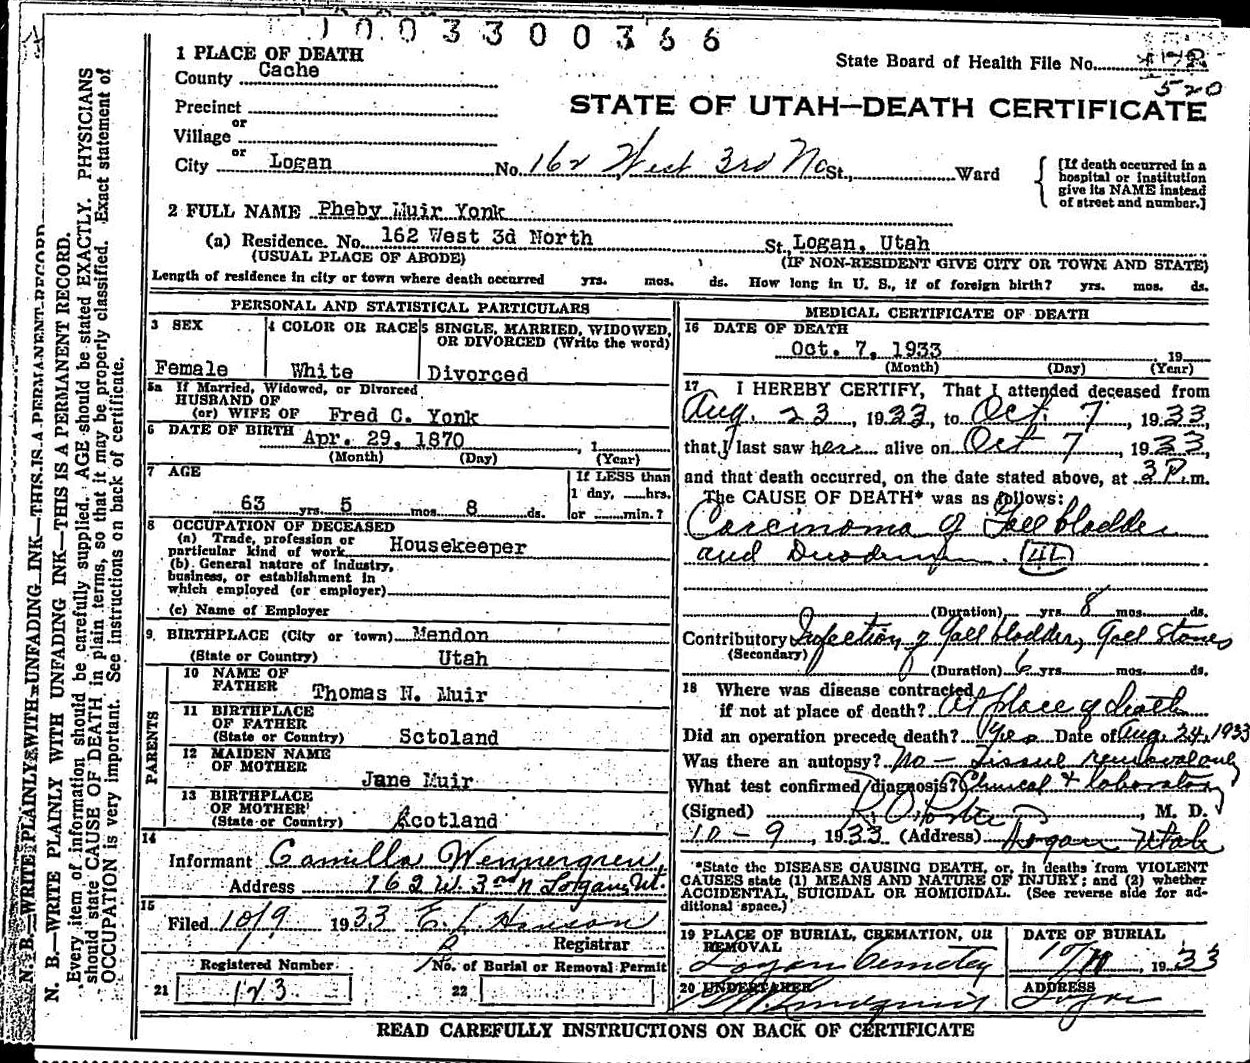 1003300366
1 PLACE OF DEATH
County Cache
State Board of Health File No.
520
Precinct
or
Village
or
City Logan No. 162 West 3rd No St., Ward
STATE OF UTAH—DEATH CERTIFICATE
[If death occurred in a
hospital or institution
give its NAME instead
of street and number.]
2 FULL NAME Pheby Muir Yonk
(a) Residence. No. 162 West 3d North St. Logan, Utah
(USUAL PLACE OF ABODE) (IF NON-RESIDENT GIVE CITY OR TOWN AND STATE)
Length of residence in city or town where death occurred yrs. mos. ds. How long in U. S., if of foreign birth? yrs. mos. ds.
PERSONAL AND STATISTICAL PARTICULARS
3 SEX 4 COLOR OR RACE 5 SINGLE, MARRIED, WIDOWED,
OR DIVORCED (Write the word)
Female White Divorced
5a If Married, Widowed, or Divorced
HUSBAND OF
(or) WIFE OF Fred C. Yonk
6 DATE OF BIRTH Apr. 29, 1870 , 1
(Month) (Day) (Year)
7 AGE If LESS than
1 day, hrs.
63 yrs. 5 mos. 8 ds. or min.?
8 OCCUPATION OF DECEASED
(a) Trade, profession or
particular kind of work Housekeeper
(b) General nature of Industry,
business, or establishment in
which employed (or employer)
(c) Name of Employer
9. BIRTHPLACE (City or town) Mendon
(State or Country) Utah
PARENTS
10 NAME OF
FATHER Thomas N. Muir
11 BIRTHPLACE
OF FATHER
(State or Country) Sctoland
12 MAIDEN NAME
OF MOTHER Jane Muir
13 BIRTHPLACE
OF MOTHER
(State or Country) Scotland
14
Informant Camilla Wennergren
Address 162 W. 3rd N Logan, Ut.
15
Filed 10/9 1933 E. L. Hanson
Registrar
Registered Number No. of Burial or Removal Permit
21 123 22
MEDICAL CERTIFICATE OF DEATH
16 DATE OF DEATH
Oct. 7, 1933 19
(Month) (Day) (Year)
17 I HEREBY CERTIFY, That I attended deceased from
Aug. 23, 1933, to Oct. 7, 1933,
that I last saw her alive on Oct 7, 1933,
and that death occurred, on the date stated above, at 3 P.m.
The CAUSE OF DEATH* was as follows:
Carcinoma of Gall bladder
and Duodenum.
(Duration) yrs. 8 mos. ds.
Contributory Infection of Gall bladder, Gall Stones
(Secondary)
(Duration) 6 yrs. mos. ds.
18 Where was disease contracted
if not at place of death? At place of death
Did an operation precede death? Yes Date of Aug. 24, 1933
Was there an autopsy? No — Tissue removal only
What test confirmed diagnosis? Clinical & laboratory
(Signed) R. O. Porter, M. D.
10-9, 1933 (Address) Logan Utah
*State the DISEASE CAUSING DEATH, or, in deaths from VIOLENT
CAUSES state (1) MEANS AND NATURE OF INJURY; and (2) whether
ACCIDENTAL, SUICIDAL OR HOMICIDAL. (See reverse side for ad-
ditional space.)
19 PLACE OF BURIAL, CREMATION, OR
REMOVAL DATE OF BURIAL
Logan Cemetery 1933
20 UNDERTAKER ADDRESS
Logan
READ CAREFULLY INSTRUCTIONS ON BACK OF CERTIFICATE
N. B.—WRITE PLAINLY WITH UNFADING INK—THIS IS A PERMANENT RECORD
N. B.—WRITE PLAINLY WITH UNFADING INK—THIS IS A PERMANENT RECORD.
Every item of information should be carefully supplied. AGE should be stated EXACTLY. PHYSICIANS
should state CAUSE OF DEATH in plain terms, so that it may be properly classified. Exact statement of
OCCUPATION is very important. See instructions on back of certificate.